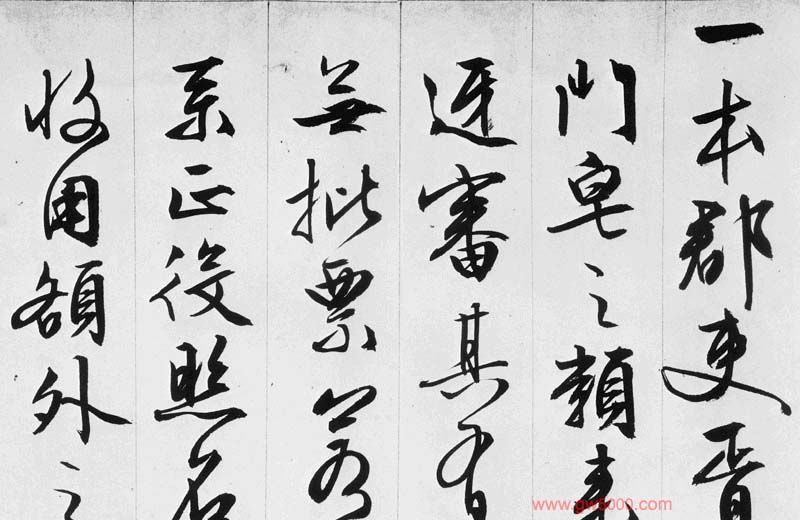 一本郡吏胥
門皂之類来
迓審其有
無批票若
系正役照名
收用額外之
www.gw5000.com